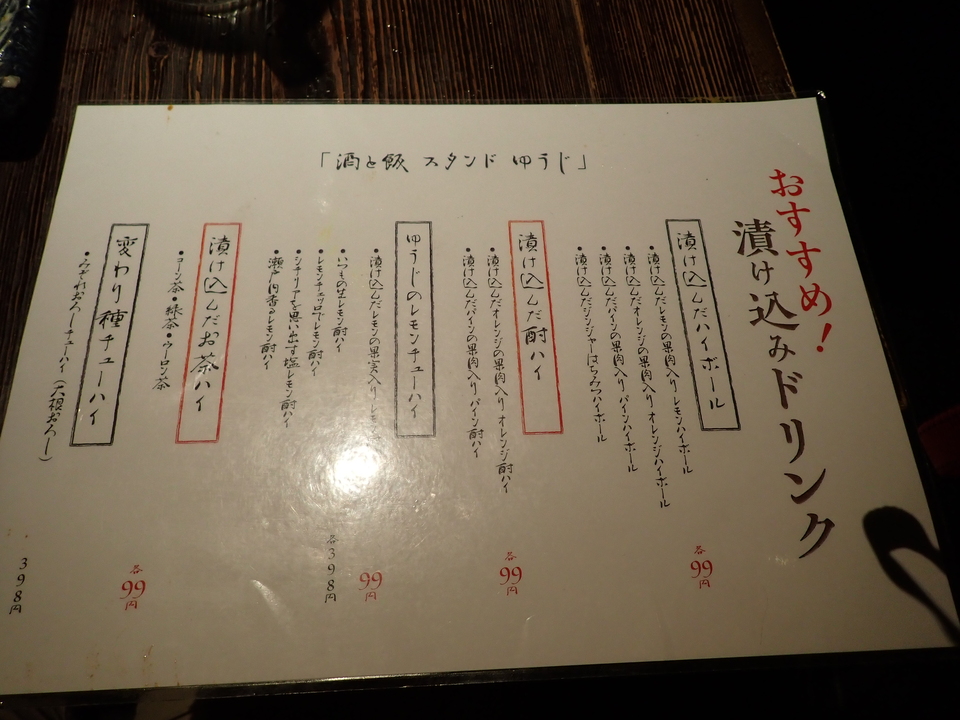 おすすめ!
漬け込みドリンク
「酒と飯 スタンド ゆうじ」
漬け込んだハイボール
・漬け込んだレモンの果肉入り レモンハイボール
・漬け込んだオレンジの果肉入り オレンジハイボール
・漬け込んだパインの果肉入り パインハイボール
・漬け込んだジンジャーはちみつハイボール
各99円
漬け込んだ酎ハイ
・漬け込んだオレンジの果肉入り オレンジ酎ハイ
・漬け込んだパインの果肉入り パイン酎ハイ
各99円
ゆうじのレモンチューハイ
・漬け込んだレモンの果実入り レモン
99円
・いつもの生レモン酎ハイ
・レモンチェッロでレモン酎ハイ
・シチリアを思い出す塩レモン酎ハイ
・瀬戸内香るレモン酎ハイ
各398円
漬け込んだお茶ハイ
・コーン茶・緑茶・ウーロン茶
各99円
変わり種チューハイ
・みぞれおろしチューハイ(大根おろし)
398円